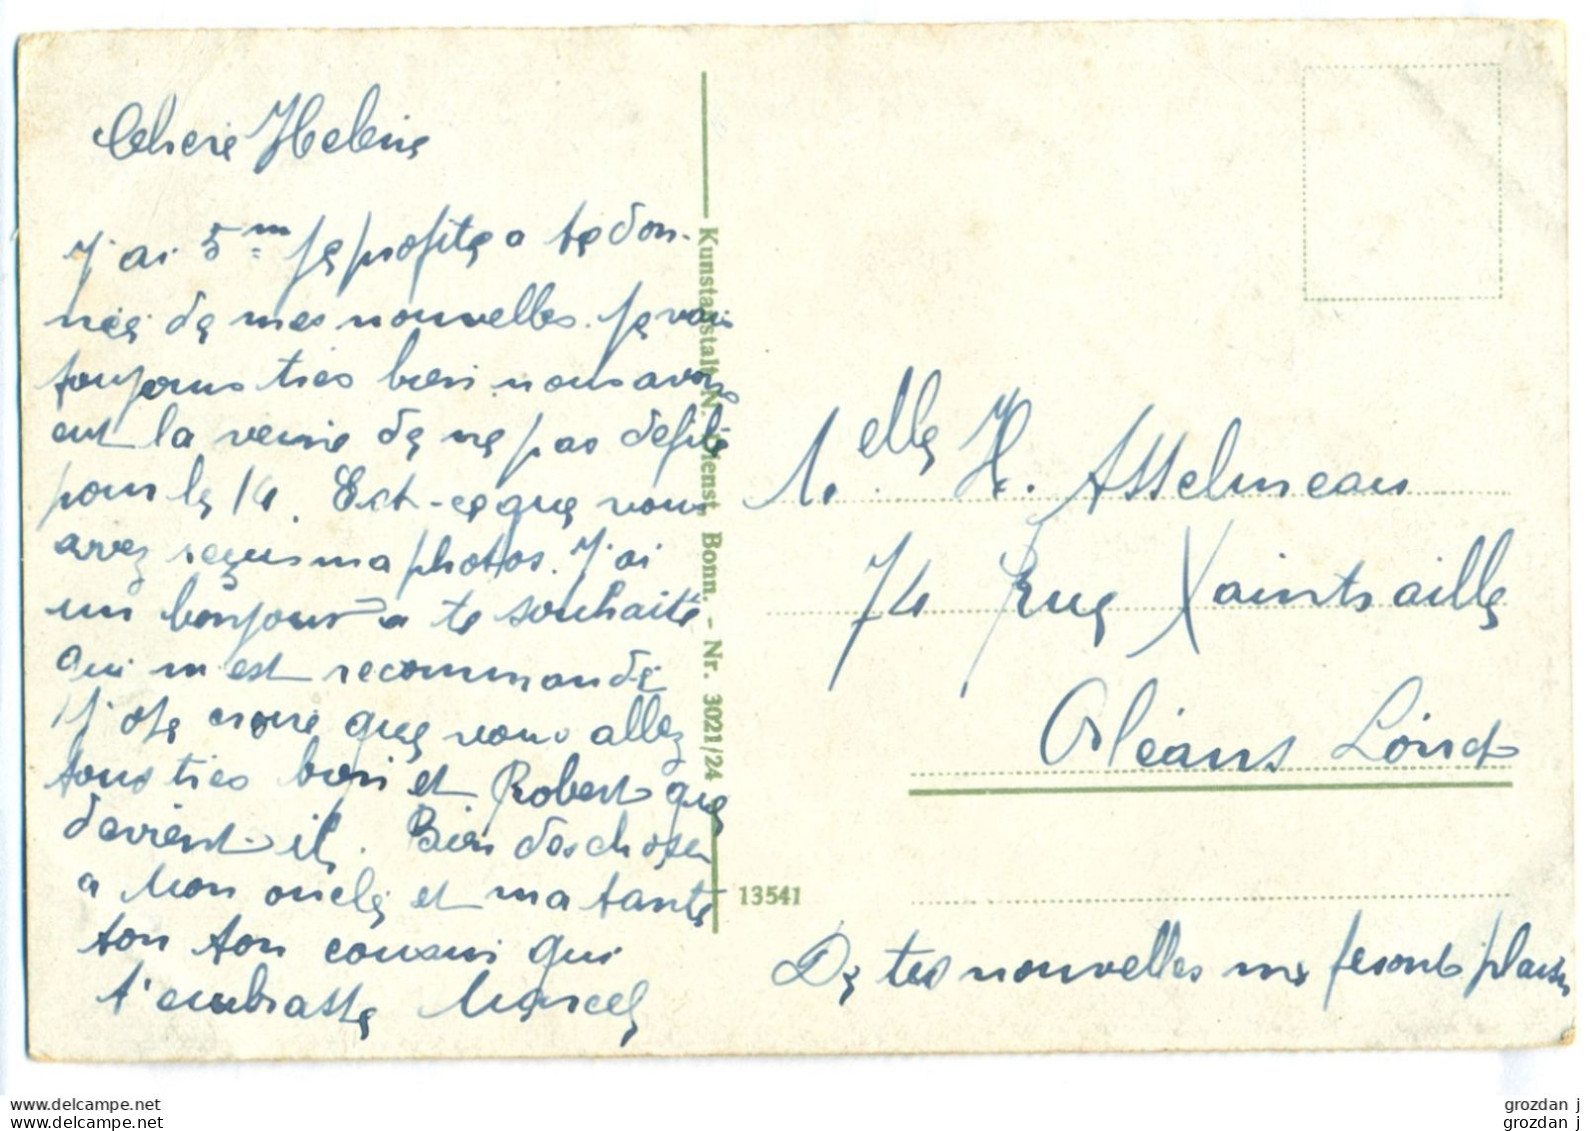 Chere Helene
J'ai 5 m je profite a te don-
née de mes nouvelles. Je vais
toujours tres bien nous avons
eut la veine de ne pas defilé
pour le 14. Est-ce que vous
avez reçus ma photos. J'ai
un bonjour a te souhaité
qui m'est recommandé
J'ose croire que vous allez
tous tres bien et Robert que
devient-il. Bien des choses
a Mon oncle et ma tante
ton ton cousin qui
t'embrasse Marcel
Kunstanstalt N. Dienst, Bonn. - Nr. 3021/24
13541
M elle H. Asselineau
74 Rue Xaintraille
Orléans Loiret
De tes nouvelles me feront plaisir
delcampe.net
delcampe.net
grozdan j
grozdan j